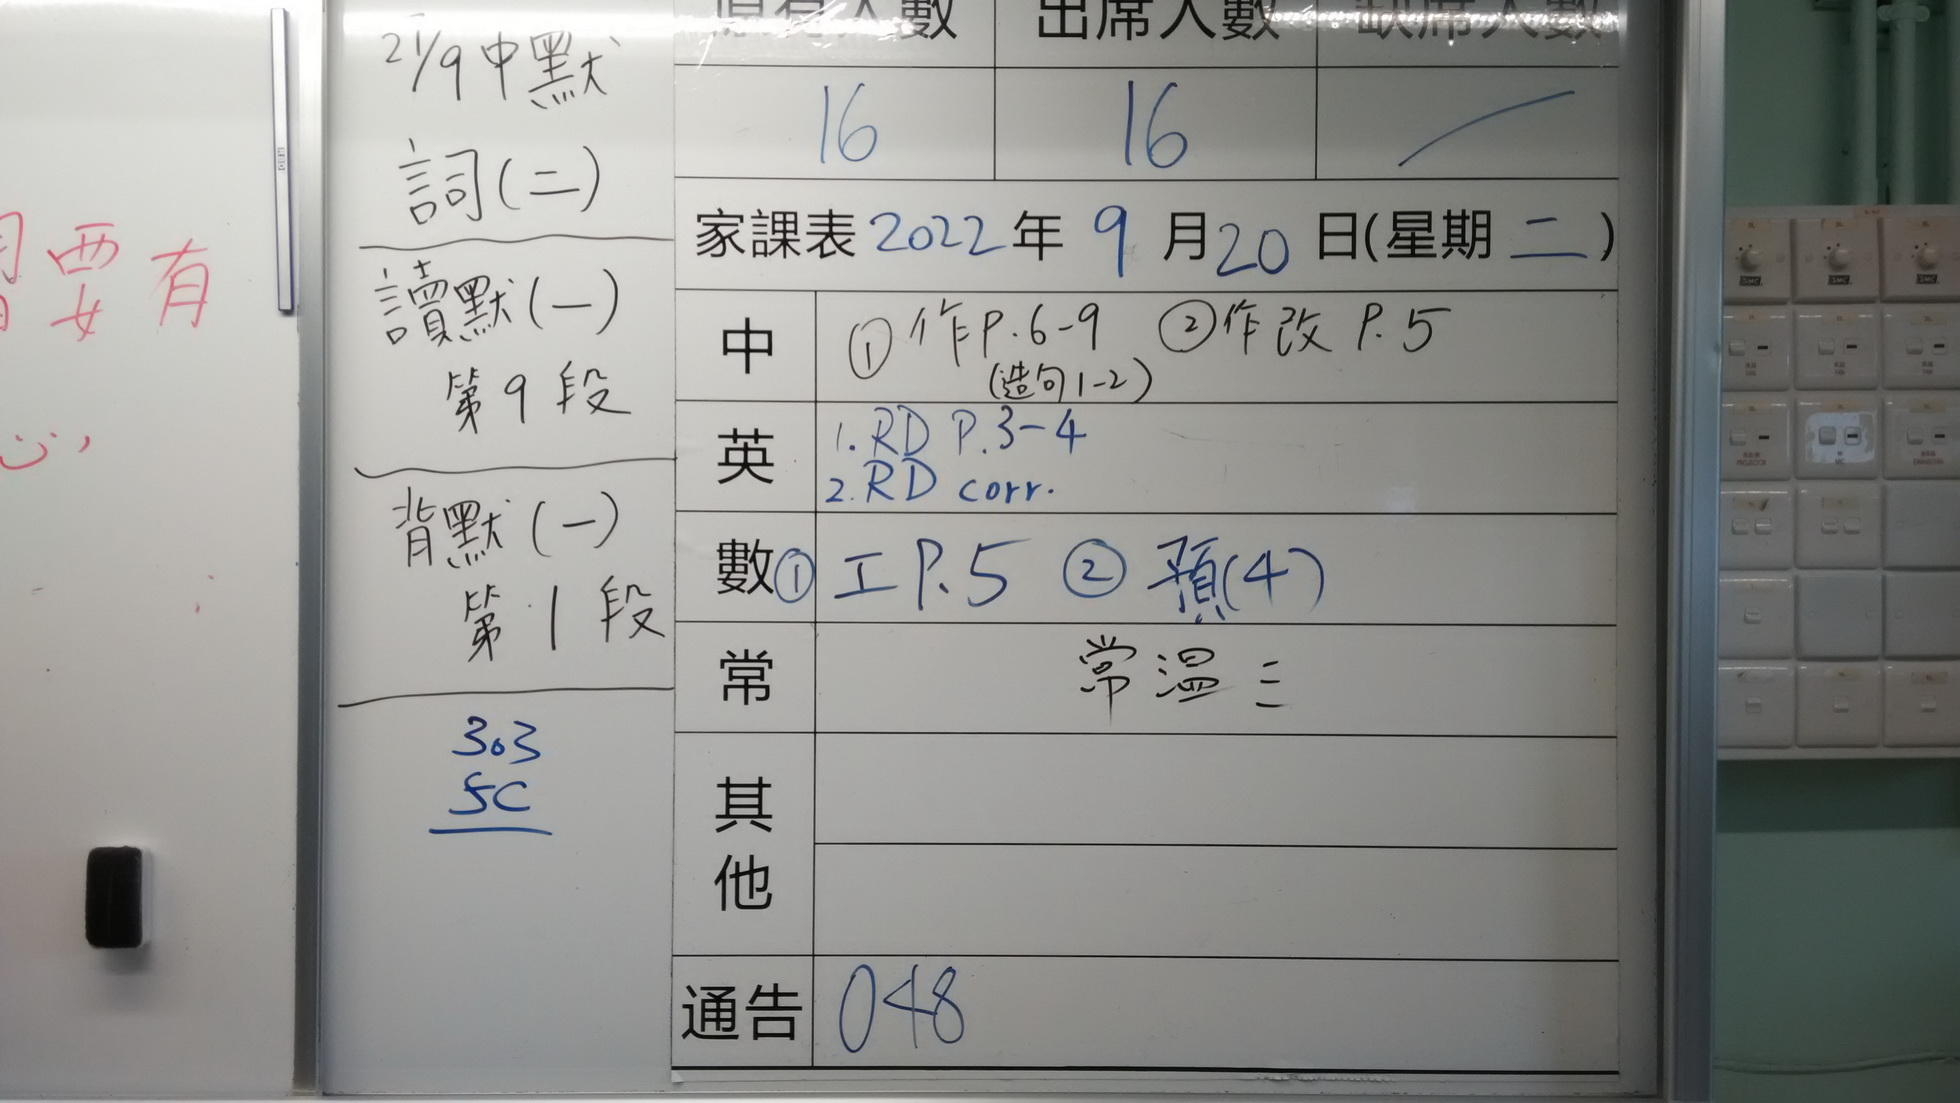 要有
心,
21/9中默
詞(二)
讀默(一)
第9段
背默(一)
第1段
303
5C
原有人數 出席人數 缺席人數
16 16
家課表2022年9月20日(星期二)
中 ①作P.6-9 ②作改 P.5
(造句1-2)
英 1. RD P.3-4
2. RD corr.
數 ①工P.5 ②預(4)
常 常溫三
其他
通告 048